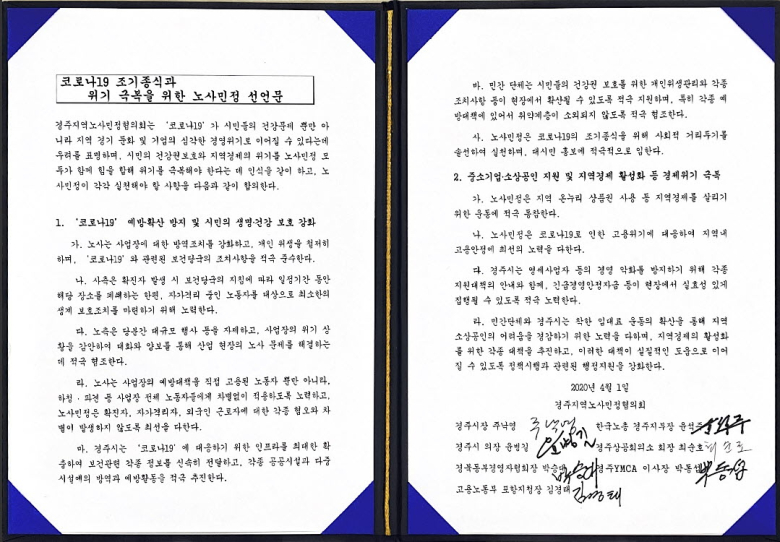 코로나19 조기종식과
위기 극복을 위한 노사민정 선언문
경주지역노사민정협의회는 '코로나19'가 시민들의 건강문제 뿐만 아
니라 지역 경기 둔화 및 기업의 심각한 경영위기로 이어질 수 있다는데
우려를 표명하며, 시민의 건강권보호와 지역경제의 위기를 노사민정 모
두가 함께 힘을 합해 위기를 극복해야 한다는 데 인식을 같이 하고, 노
사민정이 각각 실천해야 할 사항을 다음과 같이 합의한다.
1. '코로나19' 예방·확산 방지 및 시민의 생명·건강 보호 강화
가. 노사는 사업장에 대한 방역조치를 강화하고, 개인 위생을 철저히
하며, '코로나19'와 관련된 보건당국의 조치사항을 적극 준수한다.
나. 사측은 확진자 발생 시 보건당국의 지침에 따라 일정기간 동안
해당 장소를 폐쇄하는 한편, 자가격리 중인 노동자를 대상으로 최소한의
생계 보호조치를 마련하기 위해 노력한다.
다. 노측은 당분간 대규모 행사 등을 자제하고, 사업장의 위기 상
황을 감안하여 대화와 양보를 통해 산업 현장의 노사 문제를 해결하는
데 적극 협조한다.
라. 노사는 사업장의 예방대책을 직접 고용된 노동자 뿐만 아니라,
하청·파견 등 사업장 전체 노동자들에게 차별없이 적용하도록 노력하고,
노사민정은 확진자, 자가격리자, 외국인 근로자에 대한 각종 혐오와 차
별이 발생하지 않도록 최선을 다한다.
마. 경주시는 '코로나19'에 대응하기 위한 인프라를 최대한 확
충하여 보건관련 각종 정보를 신속히 전달하고, 각종 공공시설과 다중
시설에의 방역과 예방활동을 적극 추진한다.
바. 민간 단체는 시민들의 건강권 보호를 위한 개인위생관리와 각종
조치사항 등이 현장에서 확산될 수 있도록 적극 지원하며, 특히 각종 예
방대책에 있어서 취약계층이 소외되지 않도록 적극 협조한다.
사. 노사민정은 코로나19의 조기종식을 위해 사회적 거리두기를
솔선하여 실천하며, 대시민 홍보에 적극적으로 임한다.
2. 중소기업·소상공인 지원 및 지역경제 활성화 등 경제위기 극복
가. 노사민정은 지역 온누리 상품권 사용 등 지역경제를 살리기
위한 운동에 적극 동참한다.
나. 노사민정은 코로나19로 인한 고용위기에 대응하여 지역내
고용안정에 최선의 노력을 다한다.
다. 경주시는 영세사업자 등의 경영 악화를 방지하기 위해 각종
지원대책의 안내와 함께, 긴급경영안정자금 등이 현장에서 실효성 있게
집행될 수 있도록 적극 노력한다.
라. 민간단체와 경주시는 착한 임대료 운동의 확산을 통해 지역
소상공인의 어려움을 경감하기 위한 노력을 다하며, 지역경제의 활성화
를 위한 각종 대책을 추진하고, 이러한 대책이 실질적인 도움으로 이어
질 수 있도록 정책시행과 관련된 행정지원을 강화한다.
2020년 4월 1일
경주지역노사민정협의회
경주시장 주낙영 주낙영 한국노총 경주지부장 윤석주
경주시 의장 윤병길 윤병길 경주상공회의소 회장 최순호 최순호
경북동부경영자협회장 박승대 박승대 경주YMCA 이사장 박동섭 박동섭
고용노동부 포항지청장 김경태 김경태